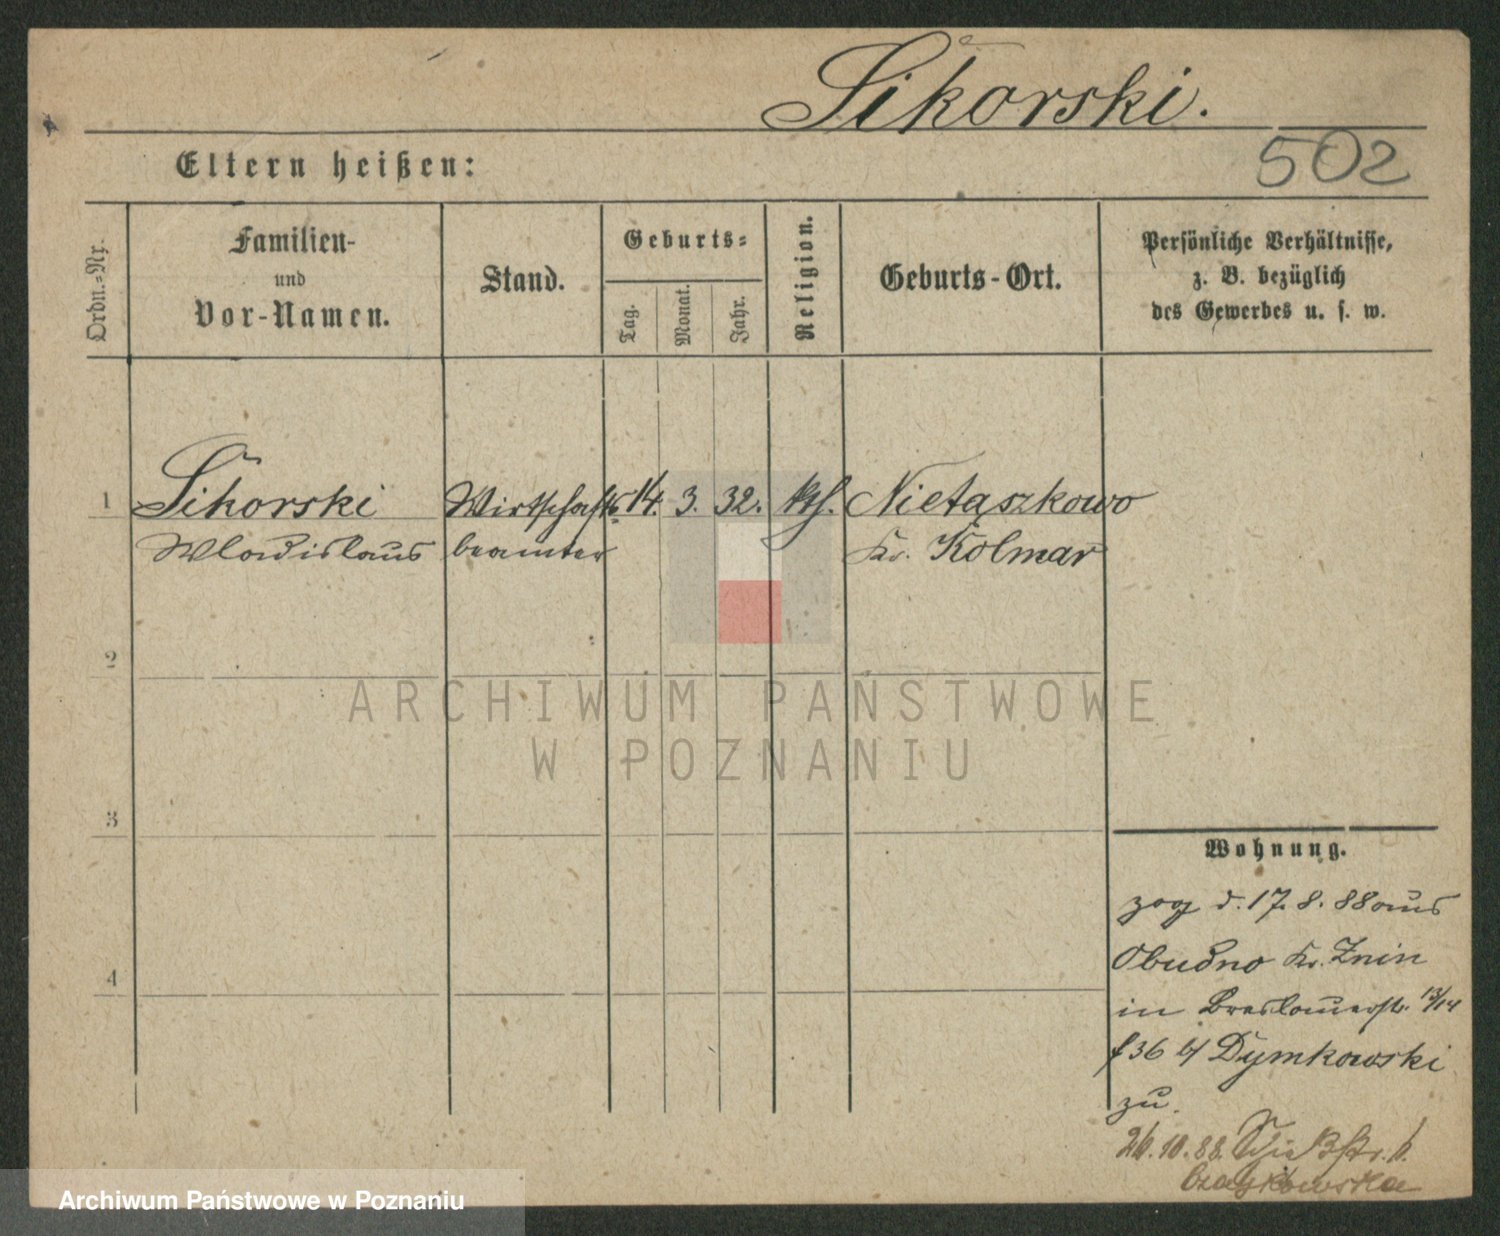 Sikorski.
502
Eltern heißen:
Ordn.-Nr.
Familien-
und
Vor-Namen.
Stand.
Geburts-
Tag.
Monat.
Jahr.
Religion.
Geburts-Ort.
Persönliche Verhältnisse,
z. B. bezüglich
des Gewerbes u. s. w.
1 Sikorski Wirtschafts 14. 3. 32. kth. Nietaszkowo
Wladislaus beamter Kr. Kolmar
2
3
4
ARCHIWUM PAŃSTWOWE
W POZNANIU
Wohnung.
zog d. 17. 8. 88 aus
Obudno Kr. Znin
in Breslauerstr. 13/14
bei Dymkowski
zu.
26. 10. 88.
Czajkowska
Archiwum Państwowe w Poznaniu